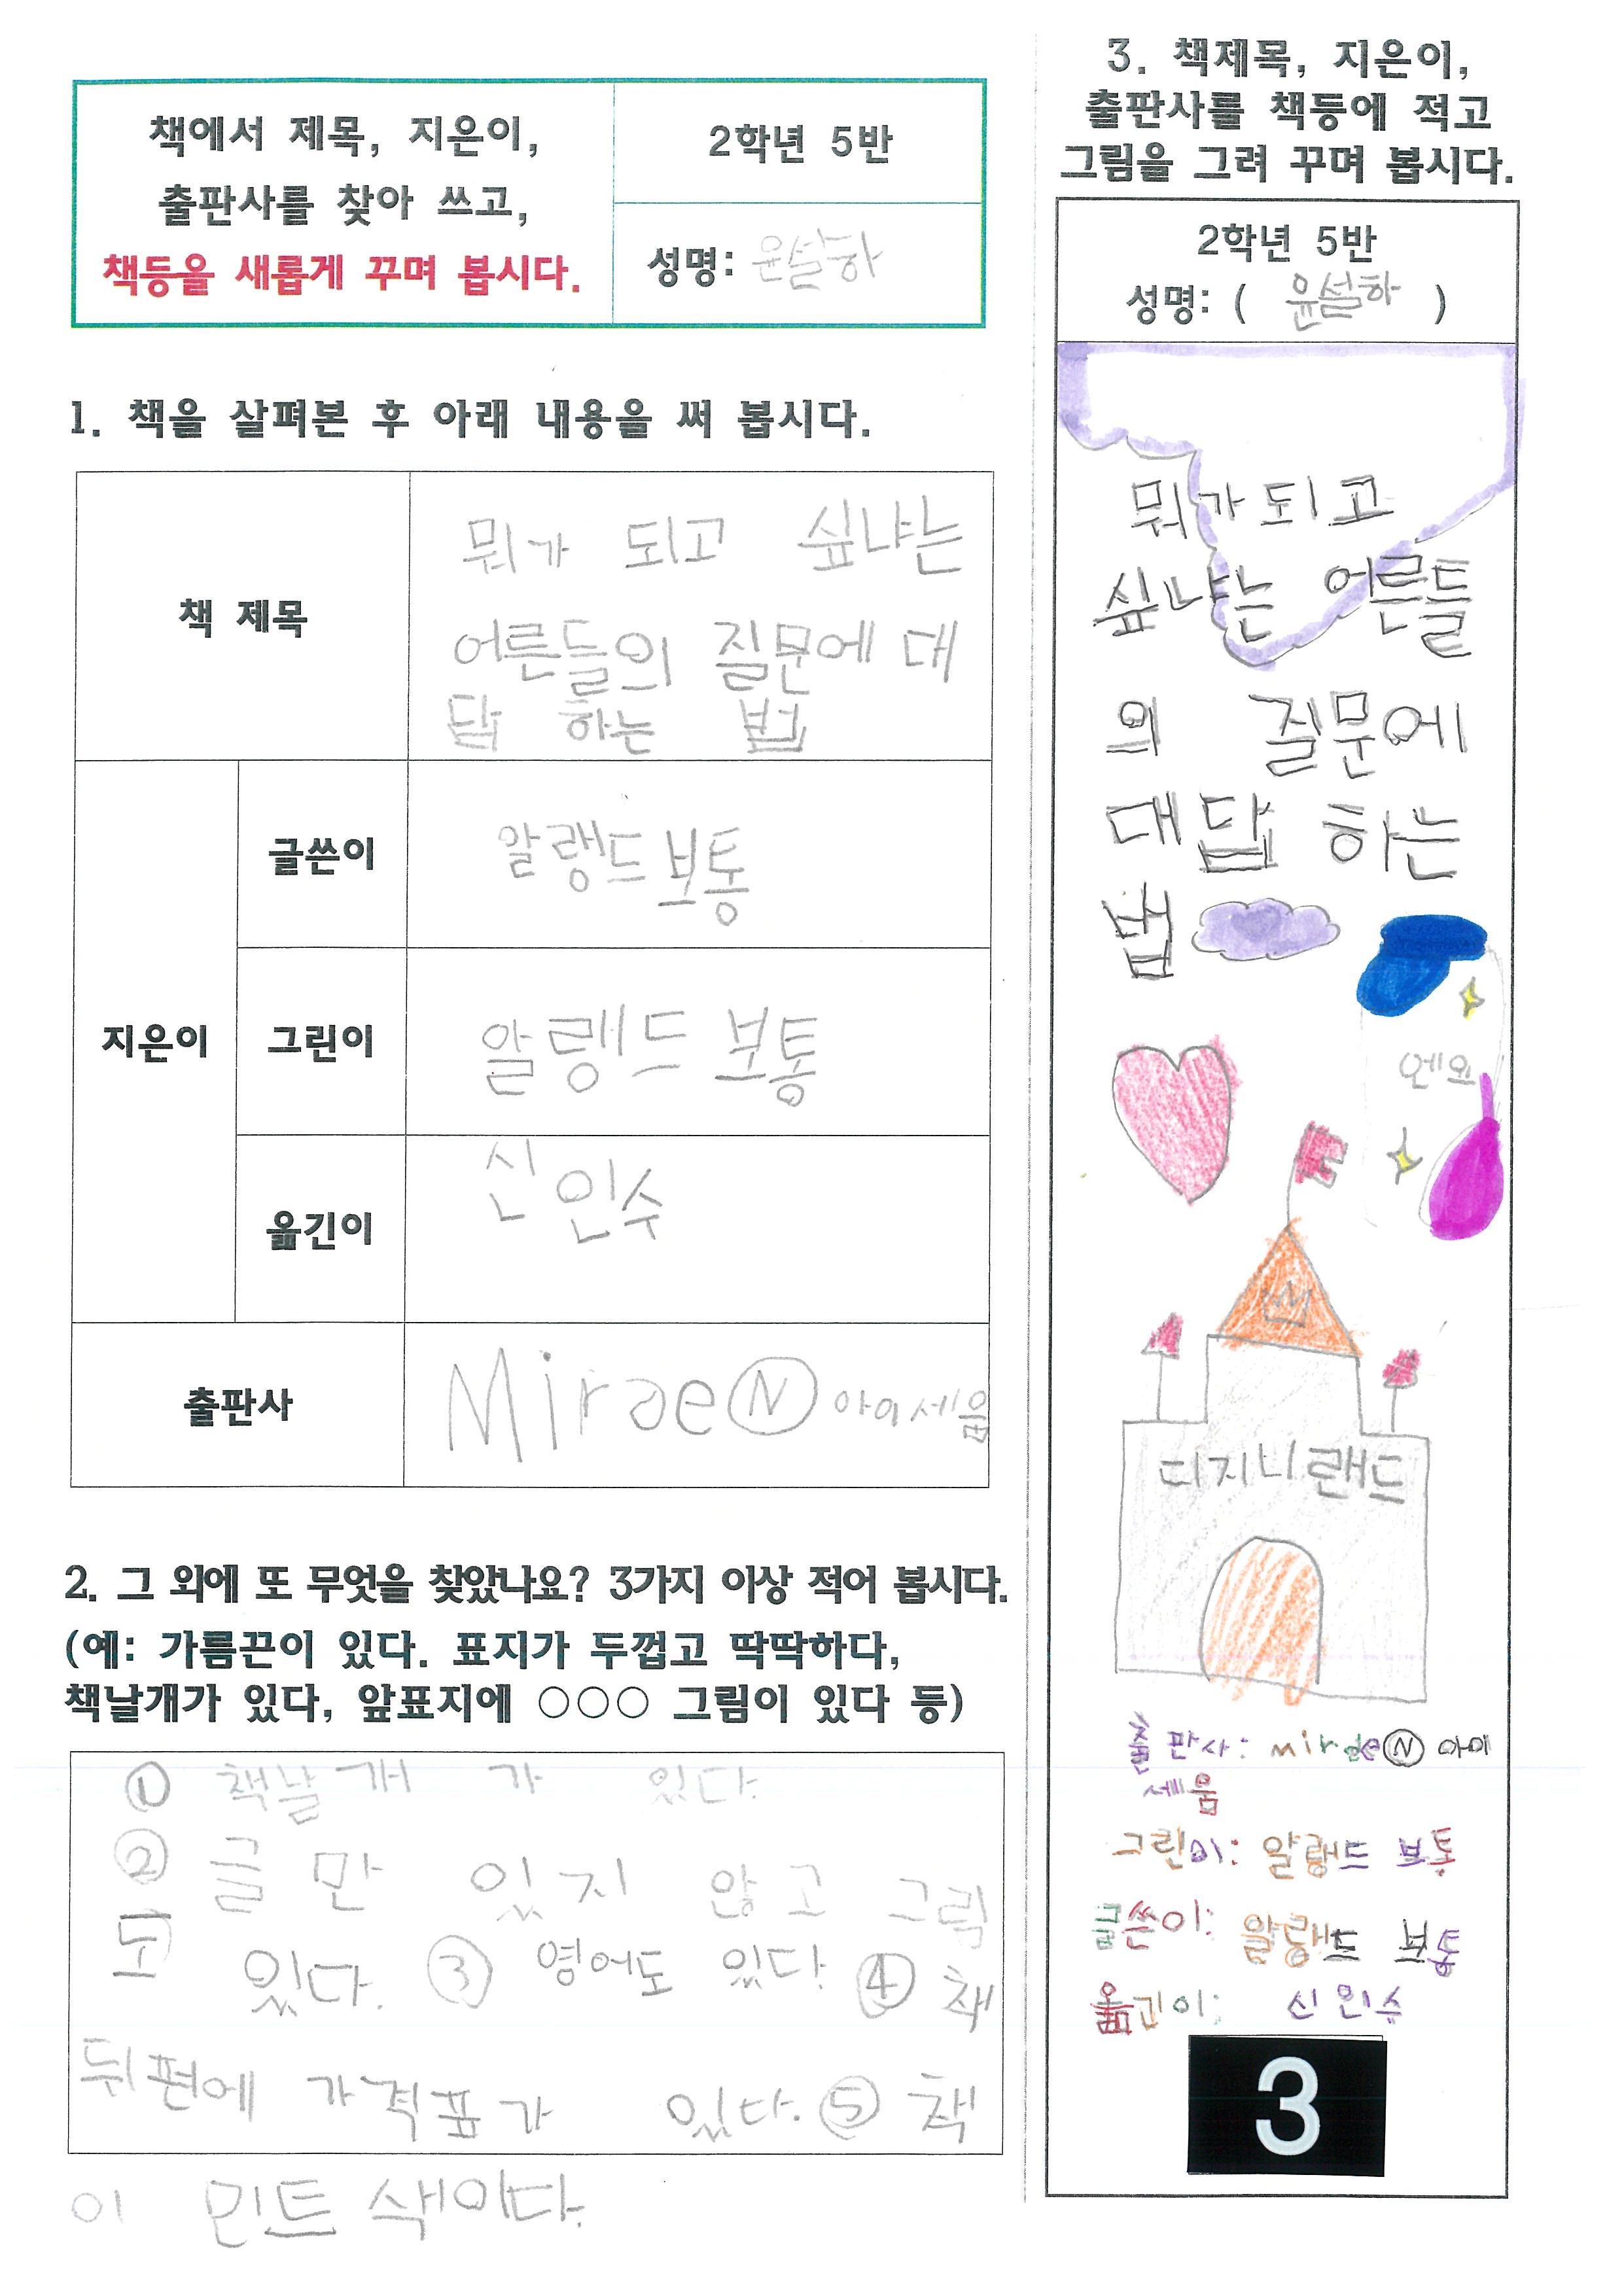 책에서 제목, 지은이,
출판사를 찾아 쓰고,
책등을 새롭게 꾸며 봅시다.
2학년 5반
성명: 윤설하
1. 책을 살펴본 후 아래 내용을 써 봅시다.
책 제목
뭐가 되고 싶냐는
어른들의 질문에 대
답 하는 법
지은이
글쓴이
알랭드보통
그린이
알랭드 보통
옮긴이
신인수
출판사
MiraeN 아이세움
2. 그 외에 또 무엇을 찾았나요? 3가지 이상 적어 봅시다.
(예: 가름끈이 있다. 표지가 두껍고 딱딱하다,
책날개가 있다, 앞표지에 ○○○ 그림이 있다 등)
① 책날개가 있다.
② 글만 있지 않고 그림
도 있다. ③ 영어도 있다. ④ 책
뒤편에 가격표가 있다. ⑤ 책
이 민트색이다.
3. 책제목, 지은이,
출판사를 책등에 적고
그림을 그려 꾸며 봅시다.
2학년 5반
성명: ( 윤설하 )
뭐가되고
싶냐는 어른들
의 질문에
대답 하는
법
디지니랜드
출판사: miraeN 아이
세움
그린이: 알랭드 보통
글쓴이: 알랭드 보통
옮긴이: 신인수
3